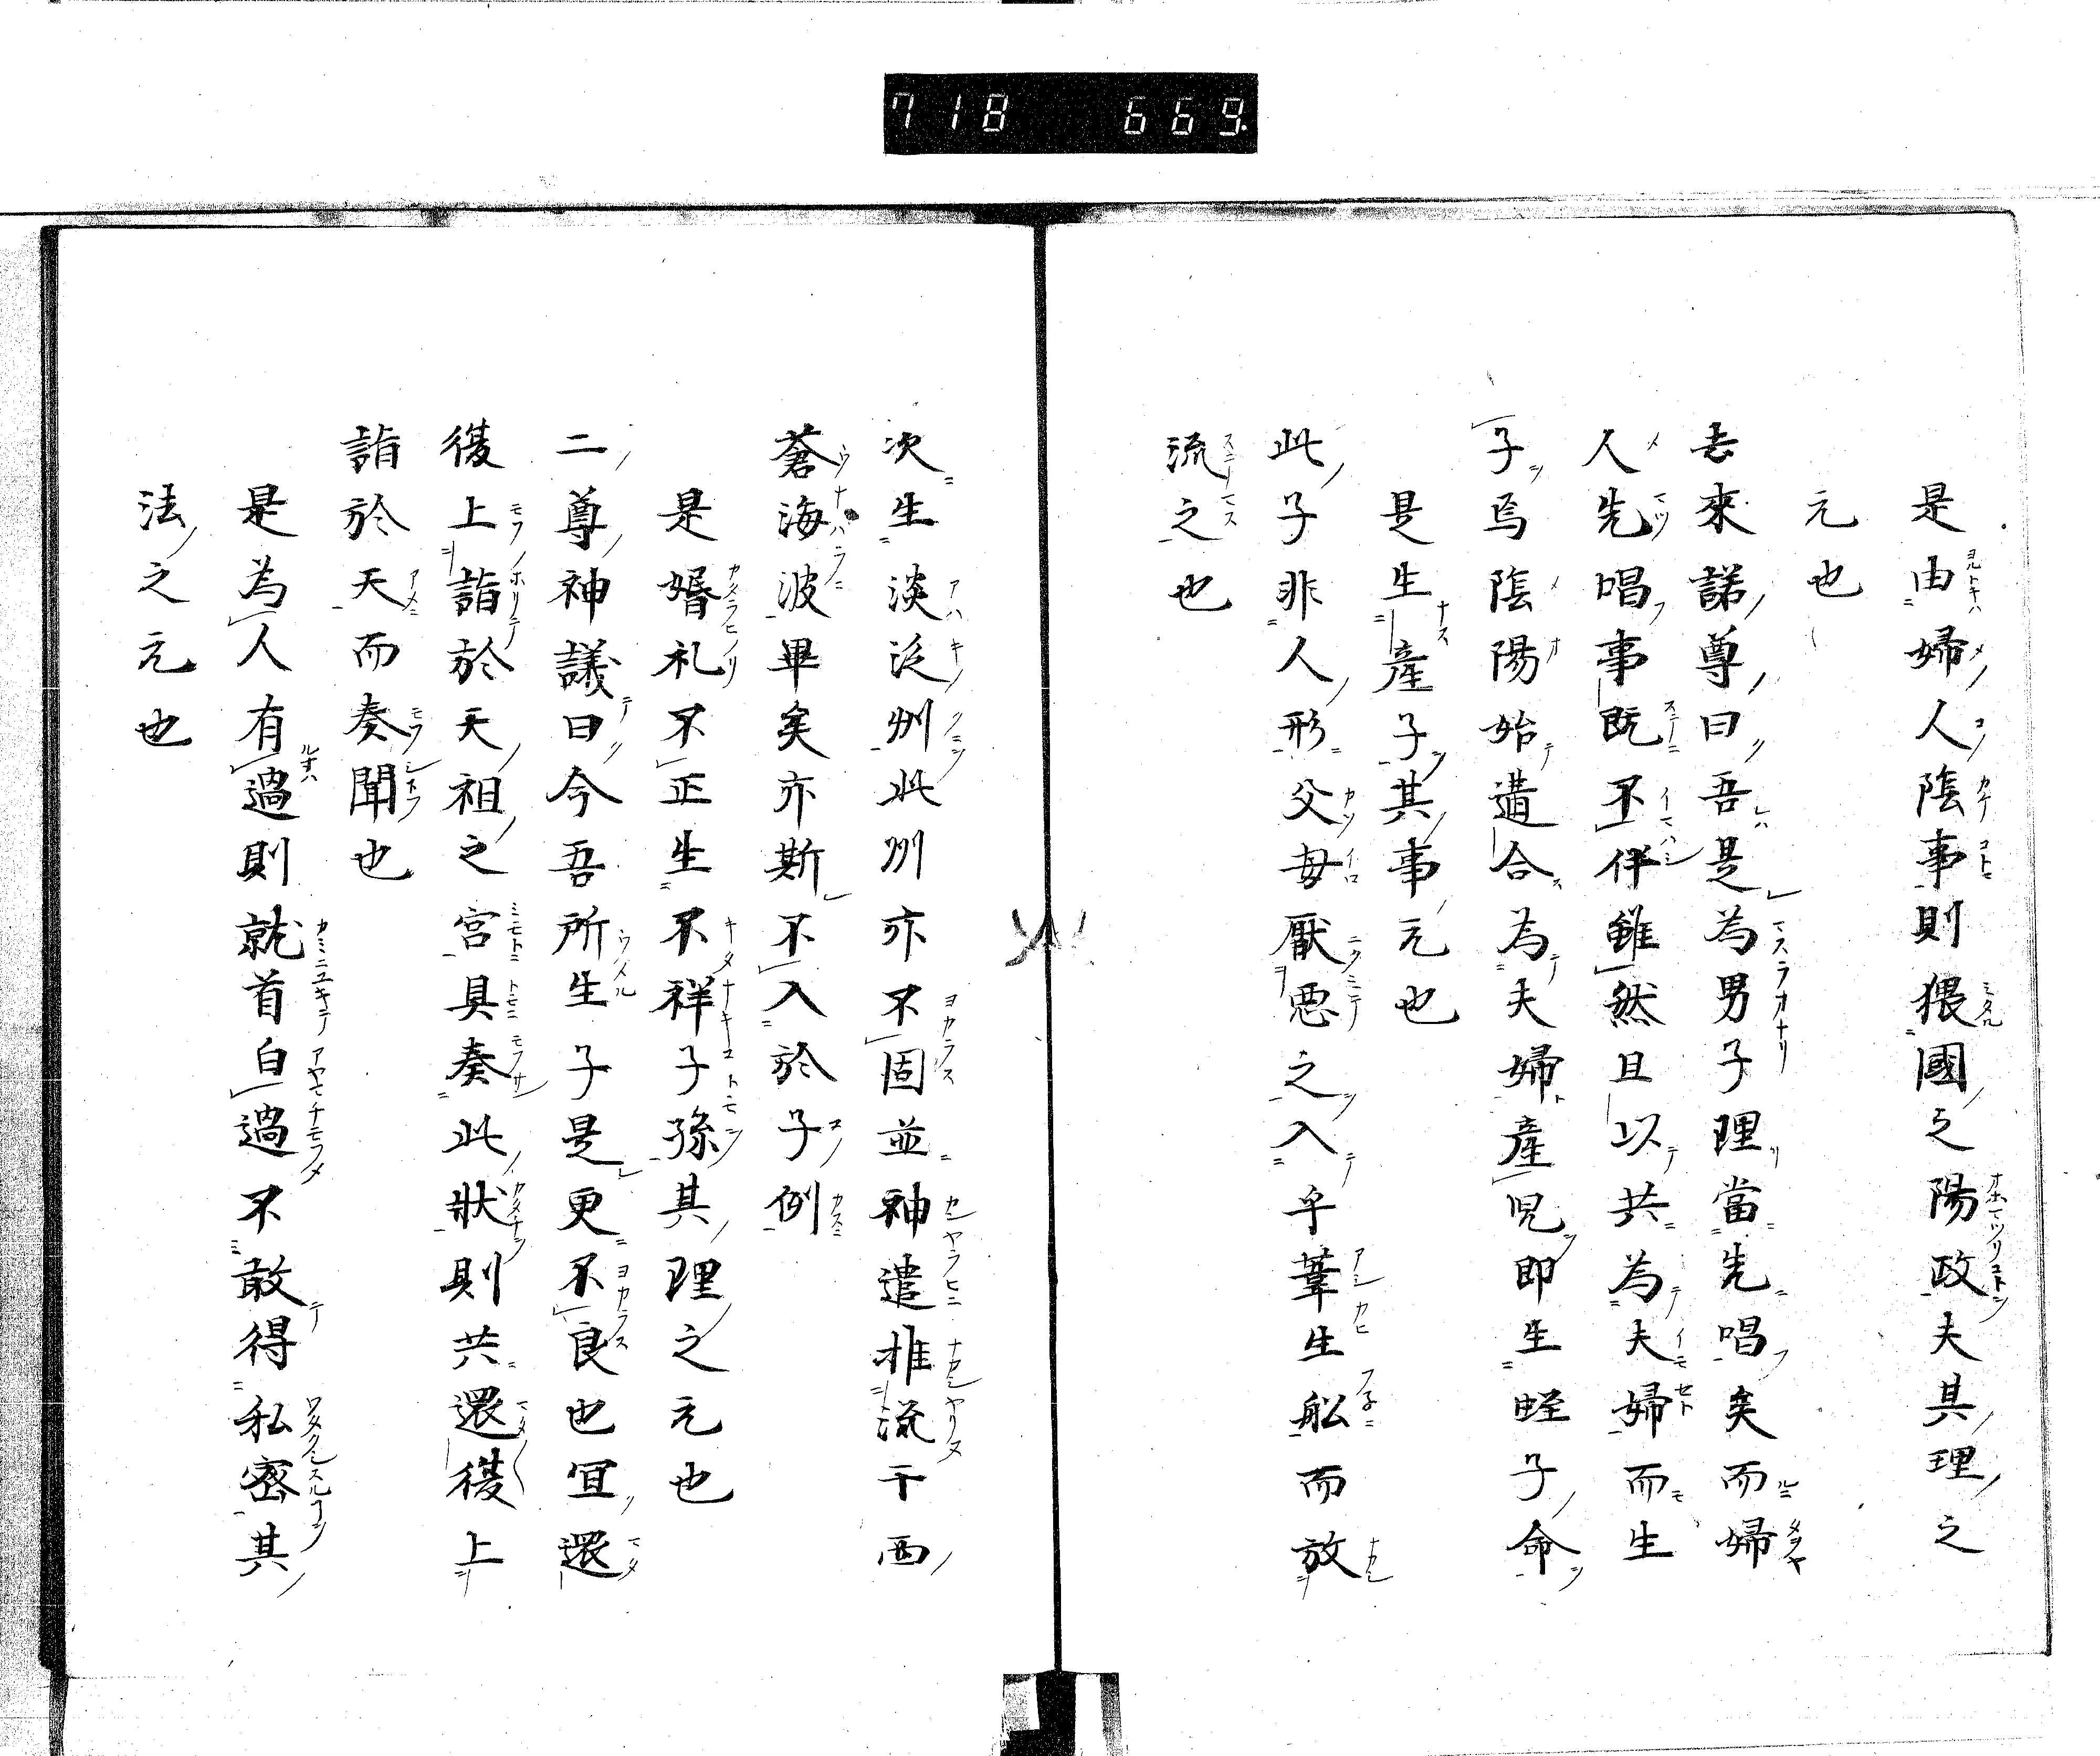 718 669.
是由婦人陰事則猥國之陽政夫其理之
元也
去來諾尊曰吾是為男子理當先唱矣而婦
人先唱事既不伴雖然且以共為夫婦而生
子焉陰陽始遘合為夫婦產兒即生蛭子命
是生產子其事元也
此子非人形父母厭惡之入乎葦生舩而放
流之也
次生淡泛州此州亦不固並神遣推流于西
蒼海波畢矣亦斯不入於子例
是婚礼不正生不祥子孫其理之元也
二尊神議曰今吾所生子是更不良也宜還
復上詣於天祖之宮具奏此狀則共還復上
詣於天而奏聞也
是為人有過則就首白過不敢得私密其
法之元也